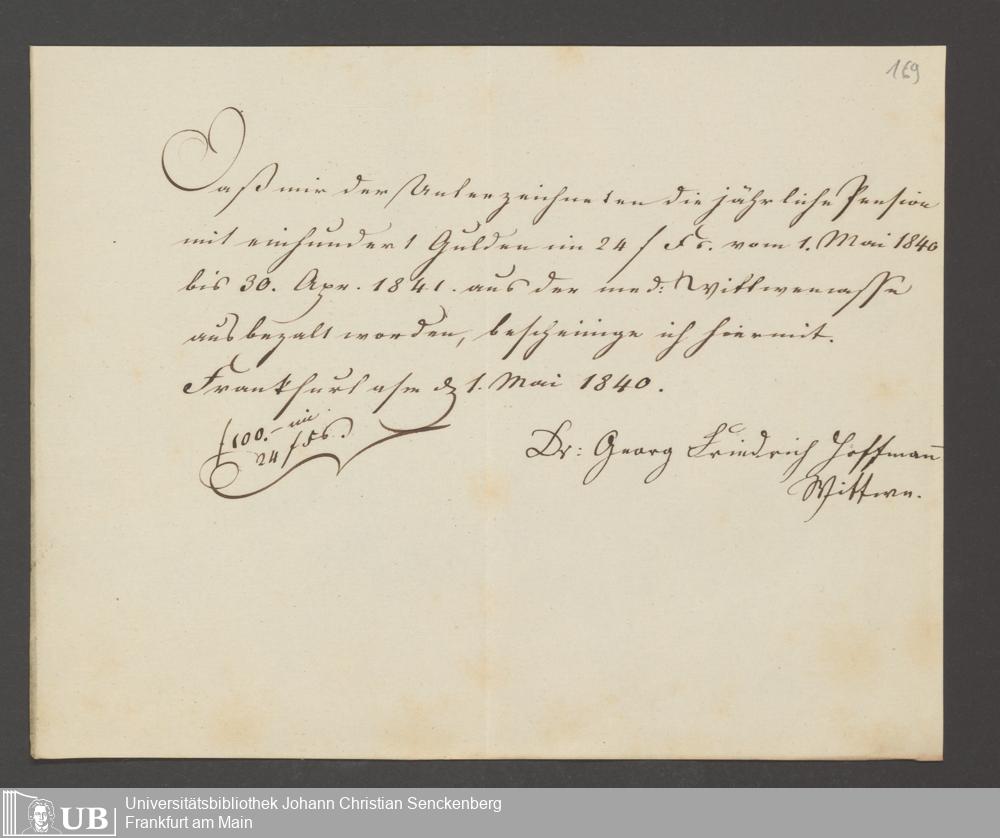 169
Daß mir der Unterzeichneten die jährliche Pension
mit einhundert Gulden im 24 f Fs. vom 1. Mai 1840
bis 30. Apr. 1841. aus der med: Wittwencasse
ausbezalt worden, bescheinige ich hiermit.
Frankfurt a/m d 1. Mai 1840.
f 100.– im
24 f Fs.
Dr: Georg Friedrich Hoffmann
Wittwe.
UB
Universitätsbibliothek Johann Christian Senckenberg
Frankfurt am Main